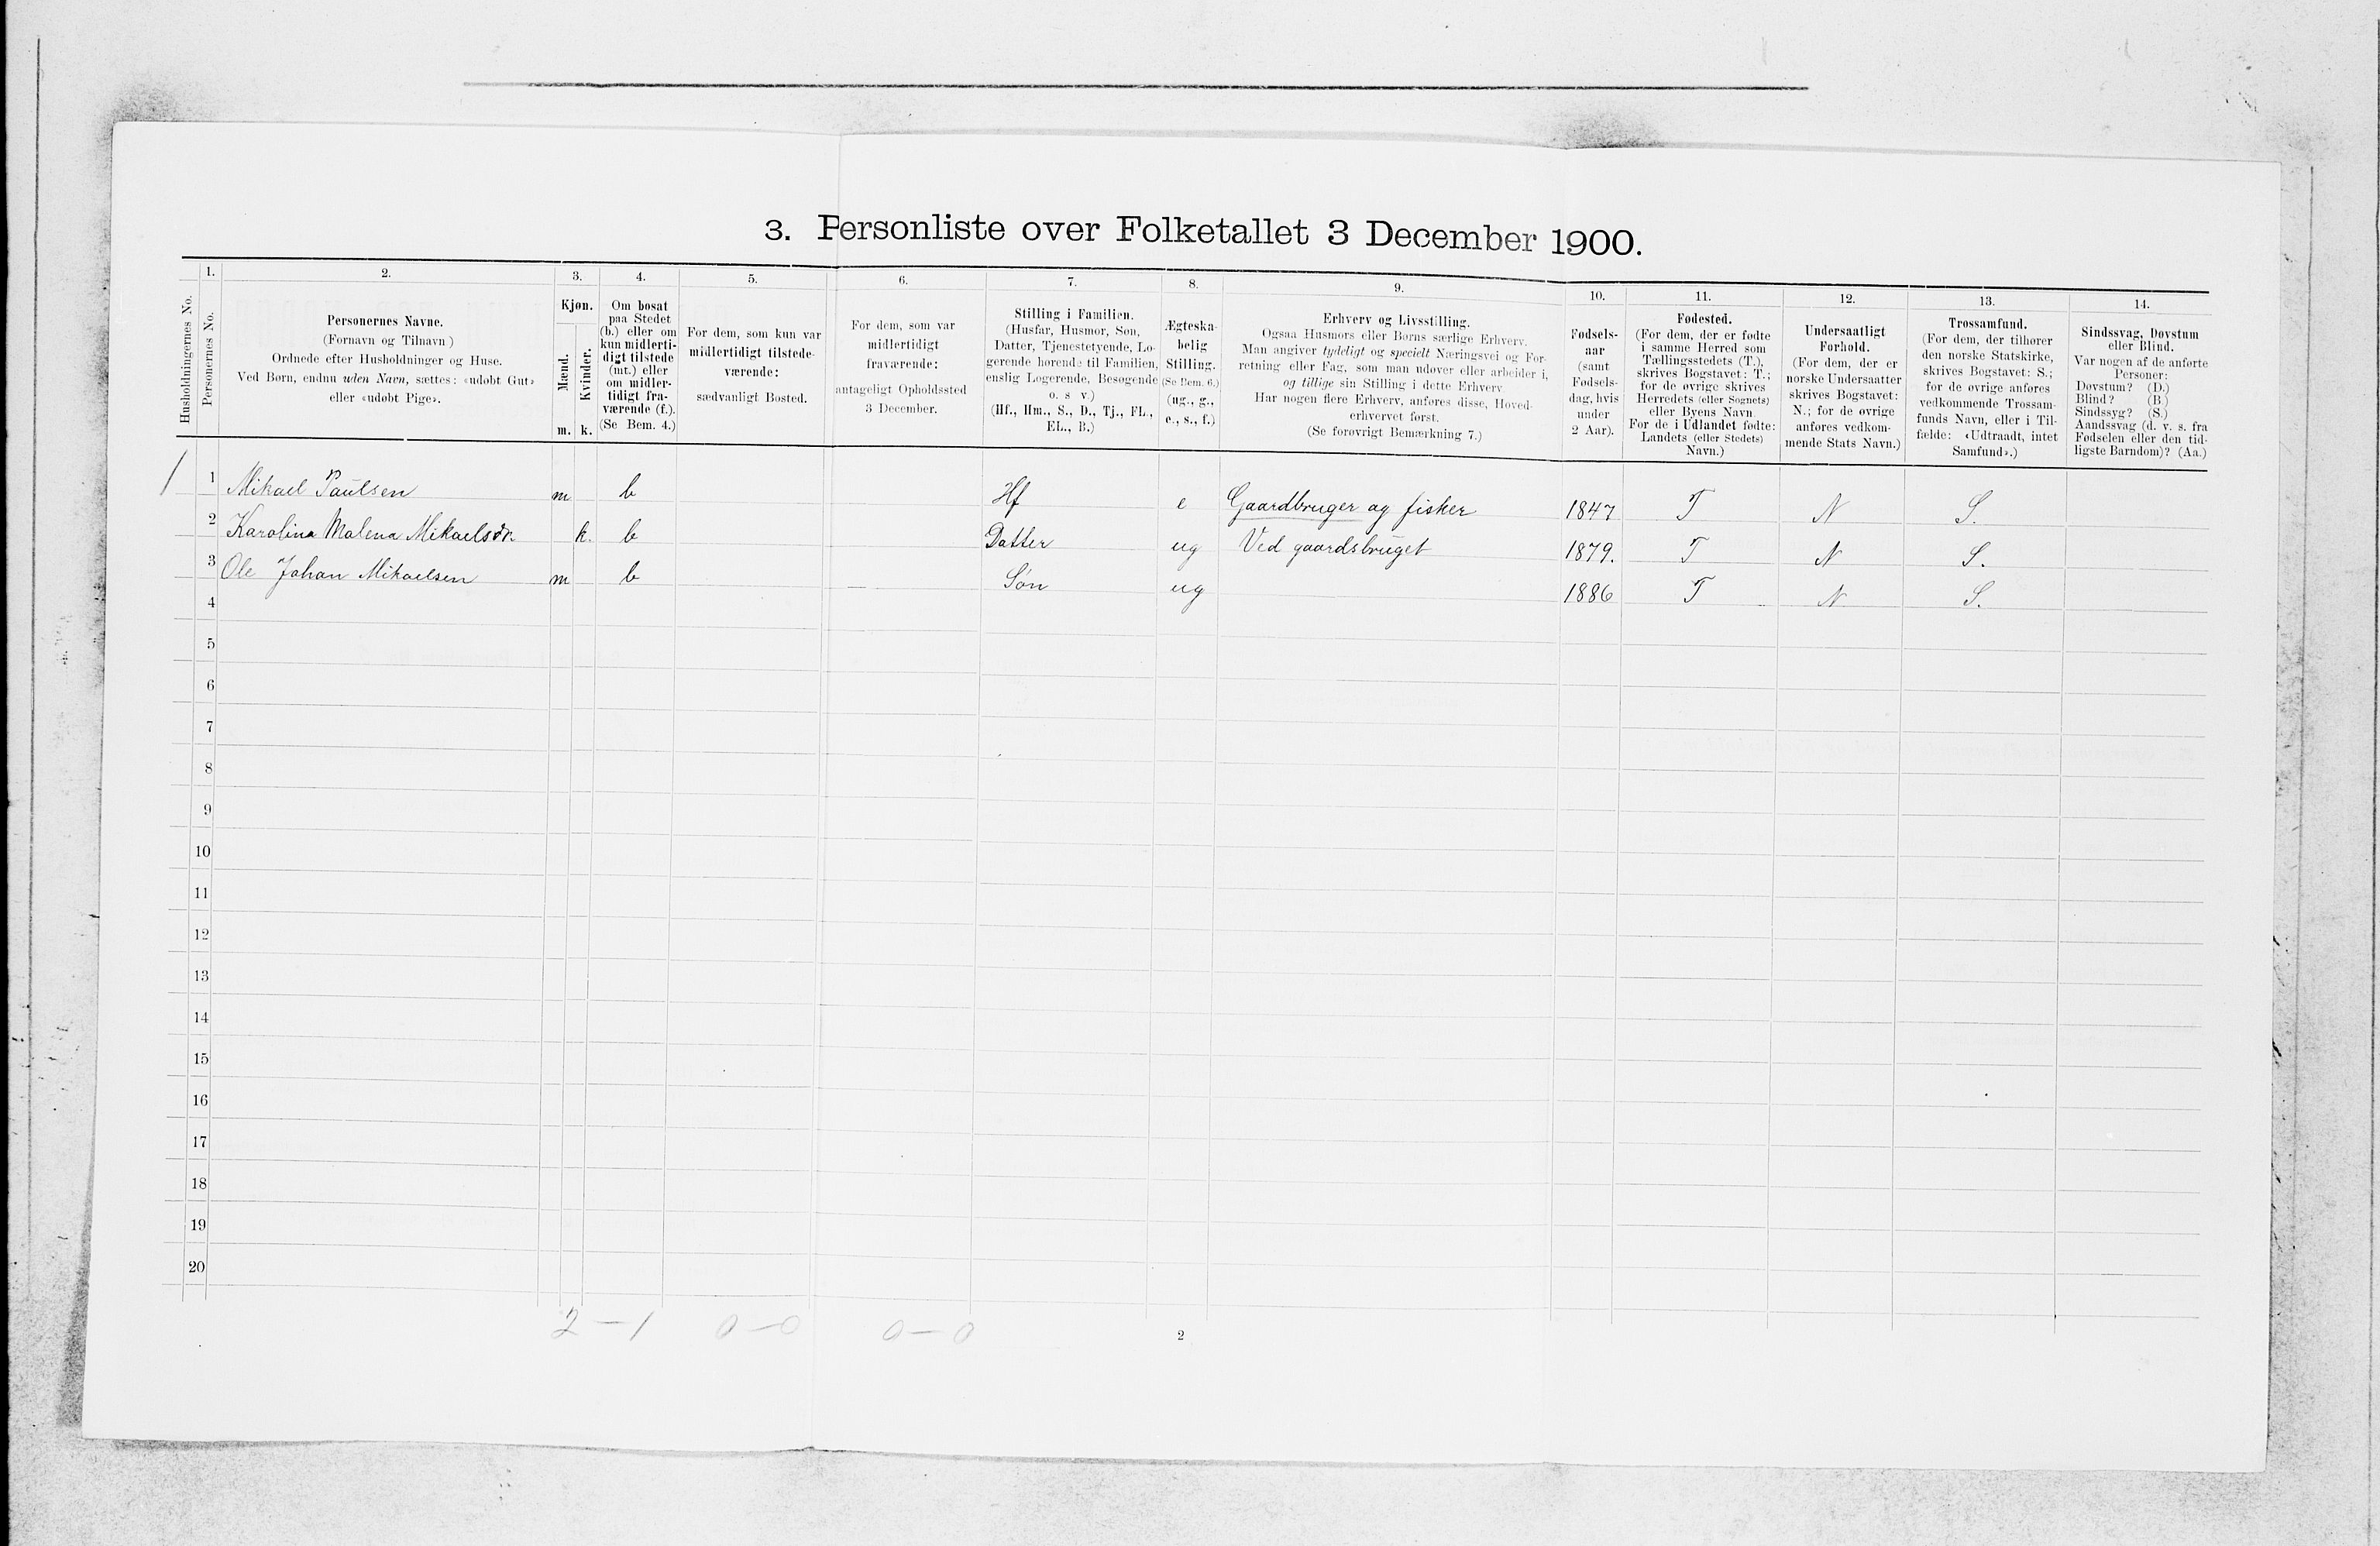 3. Personliste over Folketallet 3 December 1900.
Husholdningernes No.
1.
Personernes No.
2.
Personernes Navne.
(Fornavn og Tilnavn)
Ordnede efter Husholdninger og Huse.
Ved Børn, endnu uden Navn, sættes: «udøbt Gut»
eller «udøbt Pige».
3.
Kjøn.
Mænd.
Kvinder.
m. k.
4.
Om bosat
paa Stedet
(b.) eller om
kun midlerti-
digt tilstede
(mt.) eller
om midler-
tidigt fra-
værende (f.).
(Se Bem. 4.)
5.
For dem, som kun var
midlertidigt tilstede-
værende:
sædvanligt Bosted.
6.
For dem, som var
midlertidigt
fraværende:
antageligt Opholdssted
3 December.
7.
Stilling i Familien.
(Husfar, Husmor, Søn,
Datter, Tjenestetyende, Lo-
gerende hørende til Familien,
enslig Logerende, Besøgende
o. s v.)
(Hf., Hm., S., D., Tj., FL.,
EL., B.)
8.
Ægteska-
belig
Stilling.
(Se Bem. 6.)
(ug., g.,
e., s., f.)
9.
Erhverv og Livsstilling.
Ogsaa Husmors eller Børns særlige Erhverv.
Man angiver tydeligt og specielt Næringsvei og For-
retning eller Fag, som man udøver eller arbeider i,
og tillige sin Stilling i dette Erhverv
Har nogen flere Erhverv, anføres disse, Hoved-
erhvervet først.
(Se forøvrigt Bemærkning 7.)
10.
Fødsels-
aar
(samt
Fødsels-
dag, hvis
under
2 Aar).
11.
Fødested.
(For dem, der er fødte
i samme Herred som
Tællingsstedets (T.),
skrives Bogstavet: T.;
for de øvrige skrives
Herredets (eller Sognets)
eller Byens Navn
For de i Udlandet fødte:
Landets (eller Stedets)
Navn.)
12.
Undersaatligt
Forhold.
(For dem, der er
norske Undersaatter
skrives Bogstavet:
N.; for de øvrige
anføres vedkom-
mende Stats Navn.)
13.
Trossamfund.
(For dem, der tilhører
den norske Statskirke,
skrives Bogstavet: S.;
for de øvrige anføres
vedkommende Trossam-
funds Navn, eller i Til-
fælde: «Udtraadt, intet
Samfund».)
14.
Sindssvag, Døvstum
eller Blind.
Var nogen af de anførte
Personer:
Døvstum? (D.)
Blind? (B.)
Sindssyg? (S.)
Aandssvag (d. v. s. fra
Fødselen eller den tid-
ligste Barndom)? (Aa.)
1 1 Mikael Paulsen m b Hf e Gaardbruger og fisker 1847 T N S.
2 Karolina Malena Mikaelsdr. k. b Datter ug Ved gaardsbruget 1879. T N S.
3 Ole Johan Mikaelsen m b Søn ug 1886 T N S.
4
5
6
7
8
9
10
11
12
13
14
15
16
17
18
19
20
2 – 1 0 – 0 0 – 0
2